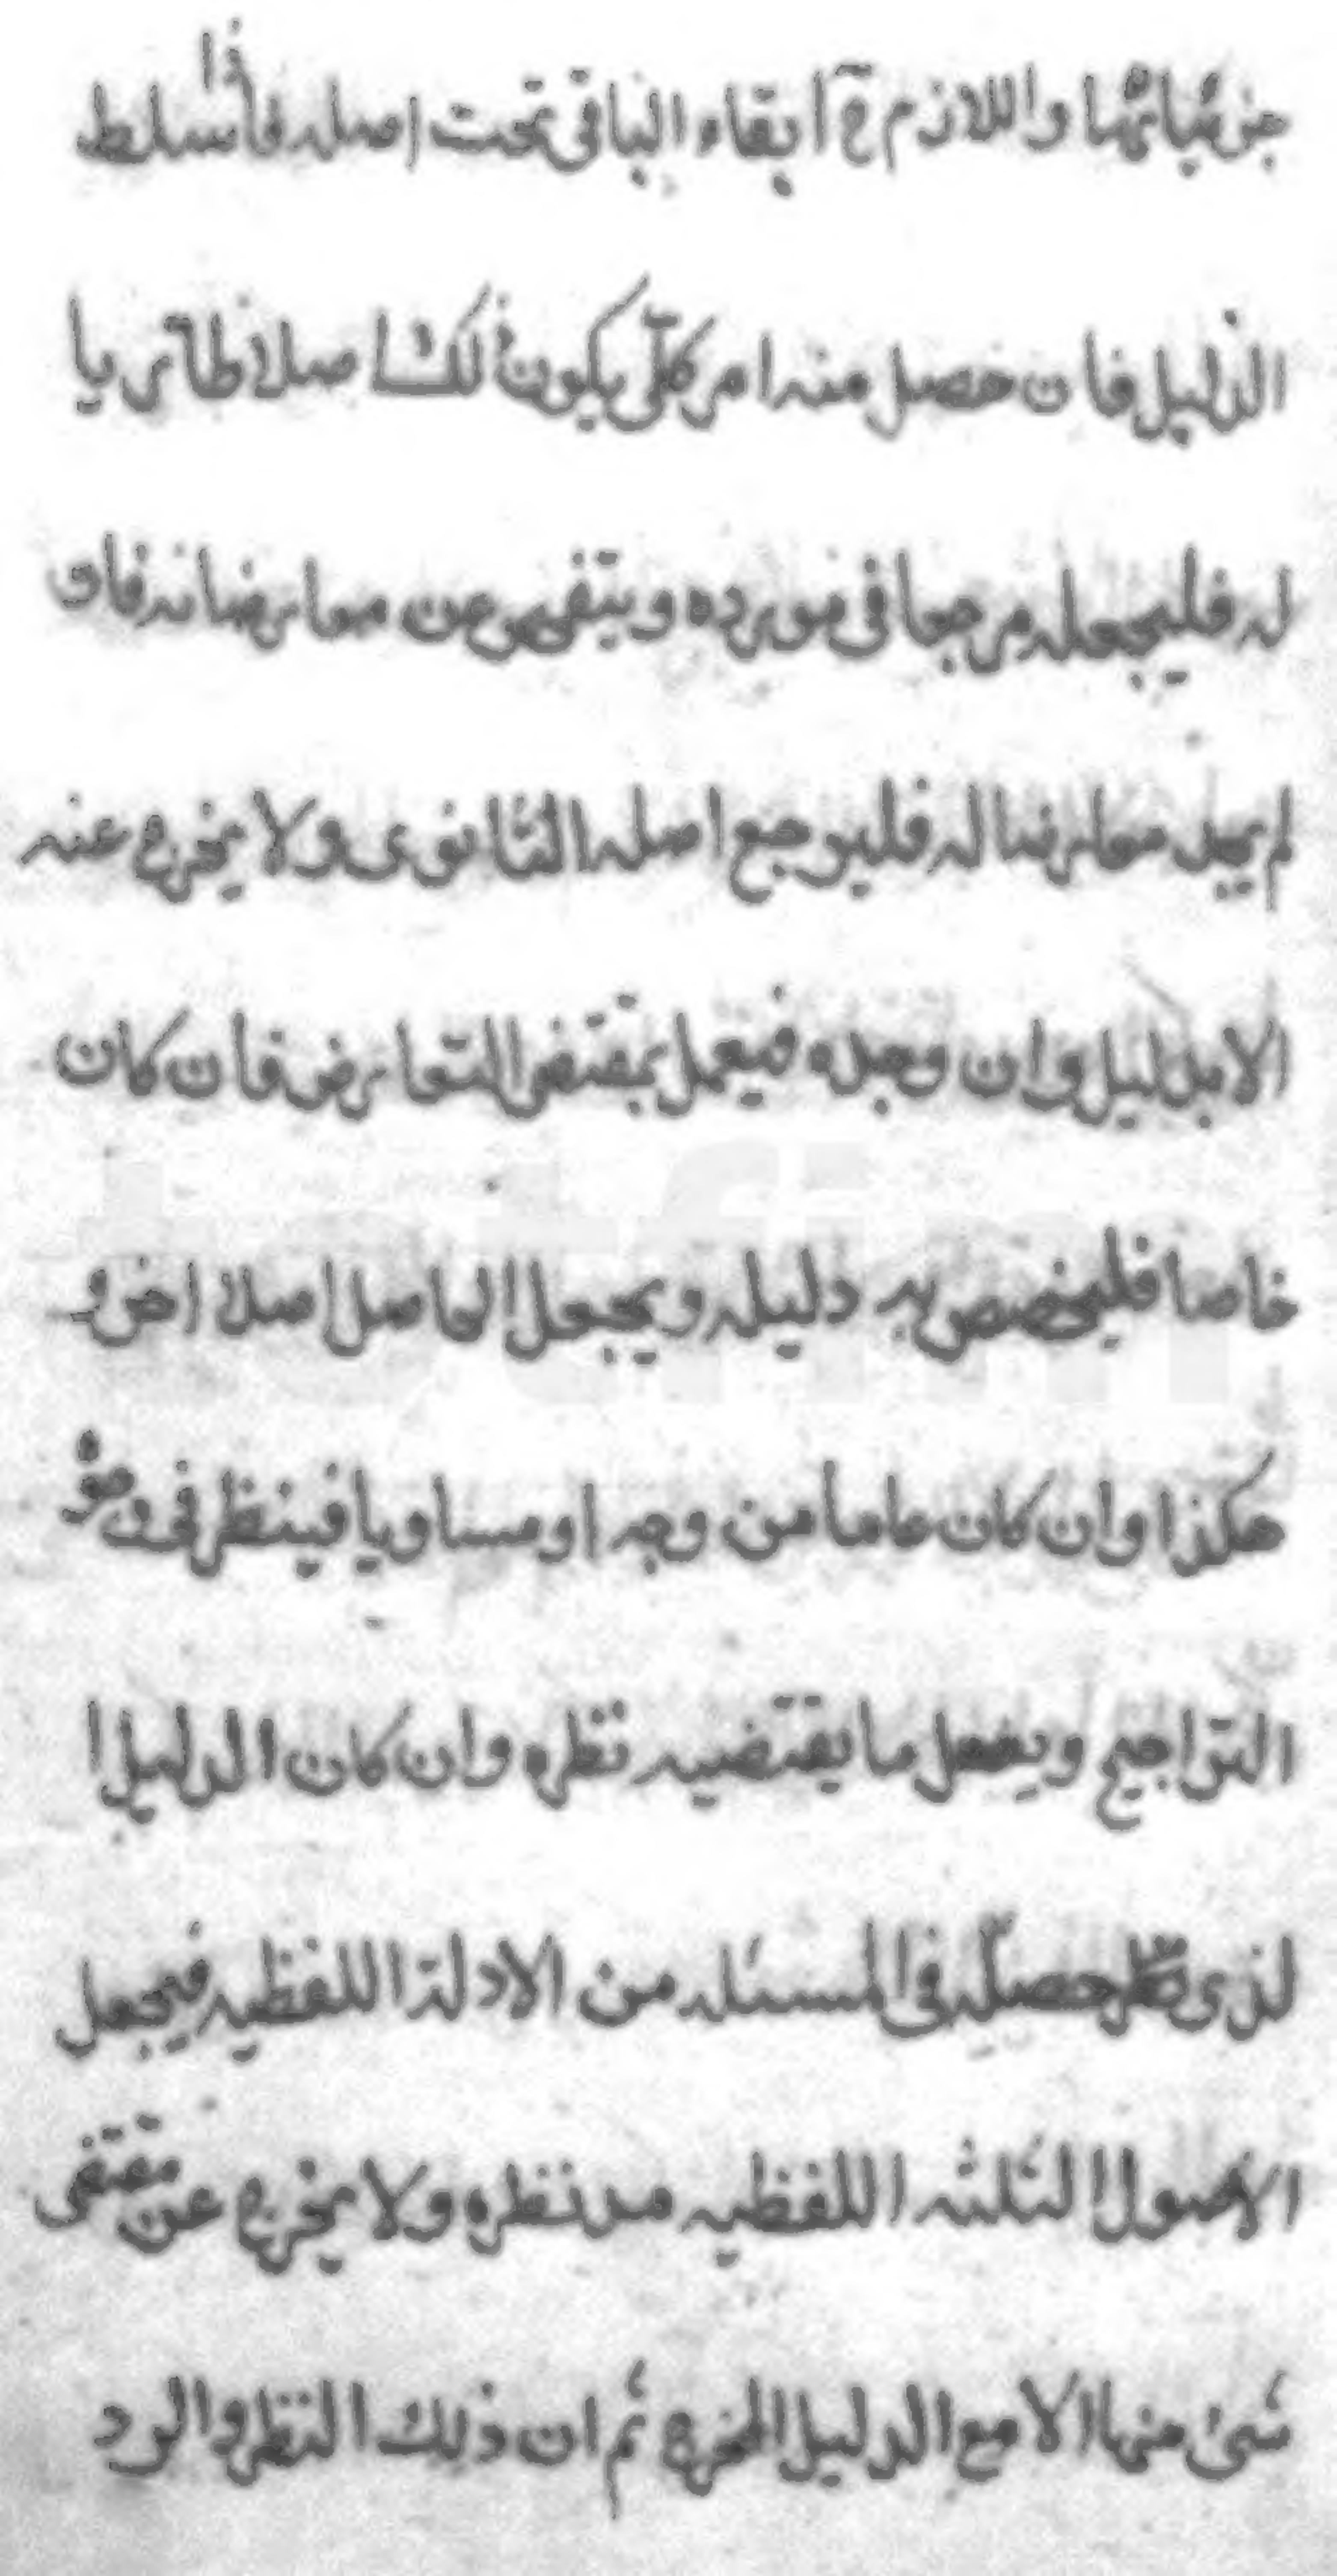 جزئياتها واللازم ح ابقاء الباقى تحت اصله فأذا سلط
الدليل فان حصل منه امر كلّى يكون ذلك اصلا طاريا
له فليجعله مرجعا فى مورده ويتفحص عن معارضاته فان
لم يجد معارضا له فليرجع اصله الثانوى ولا يخرج عنه
الا بدليل وان وجده فيعمل بمقتضى التعارض فان كان
خاصا فليخصص به دليله ويجعل الحاصل اصلا اخر و
هكذا وان كان عاما من وجه او مساويا فينظر فى وجوه
التراجيح ويفعل ما يقتضيه نظره وان كان الدليل ا
لذى حصله فى المسئله من الادلة اللفظيه فيجعل
الاصول الثلثه اللفظيه مد نظره ولا يخرج عن مقتضى
شئ منها الا مع الدليل المخرج ثم ان ذلك النظر والرد